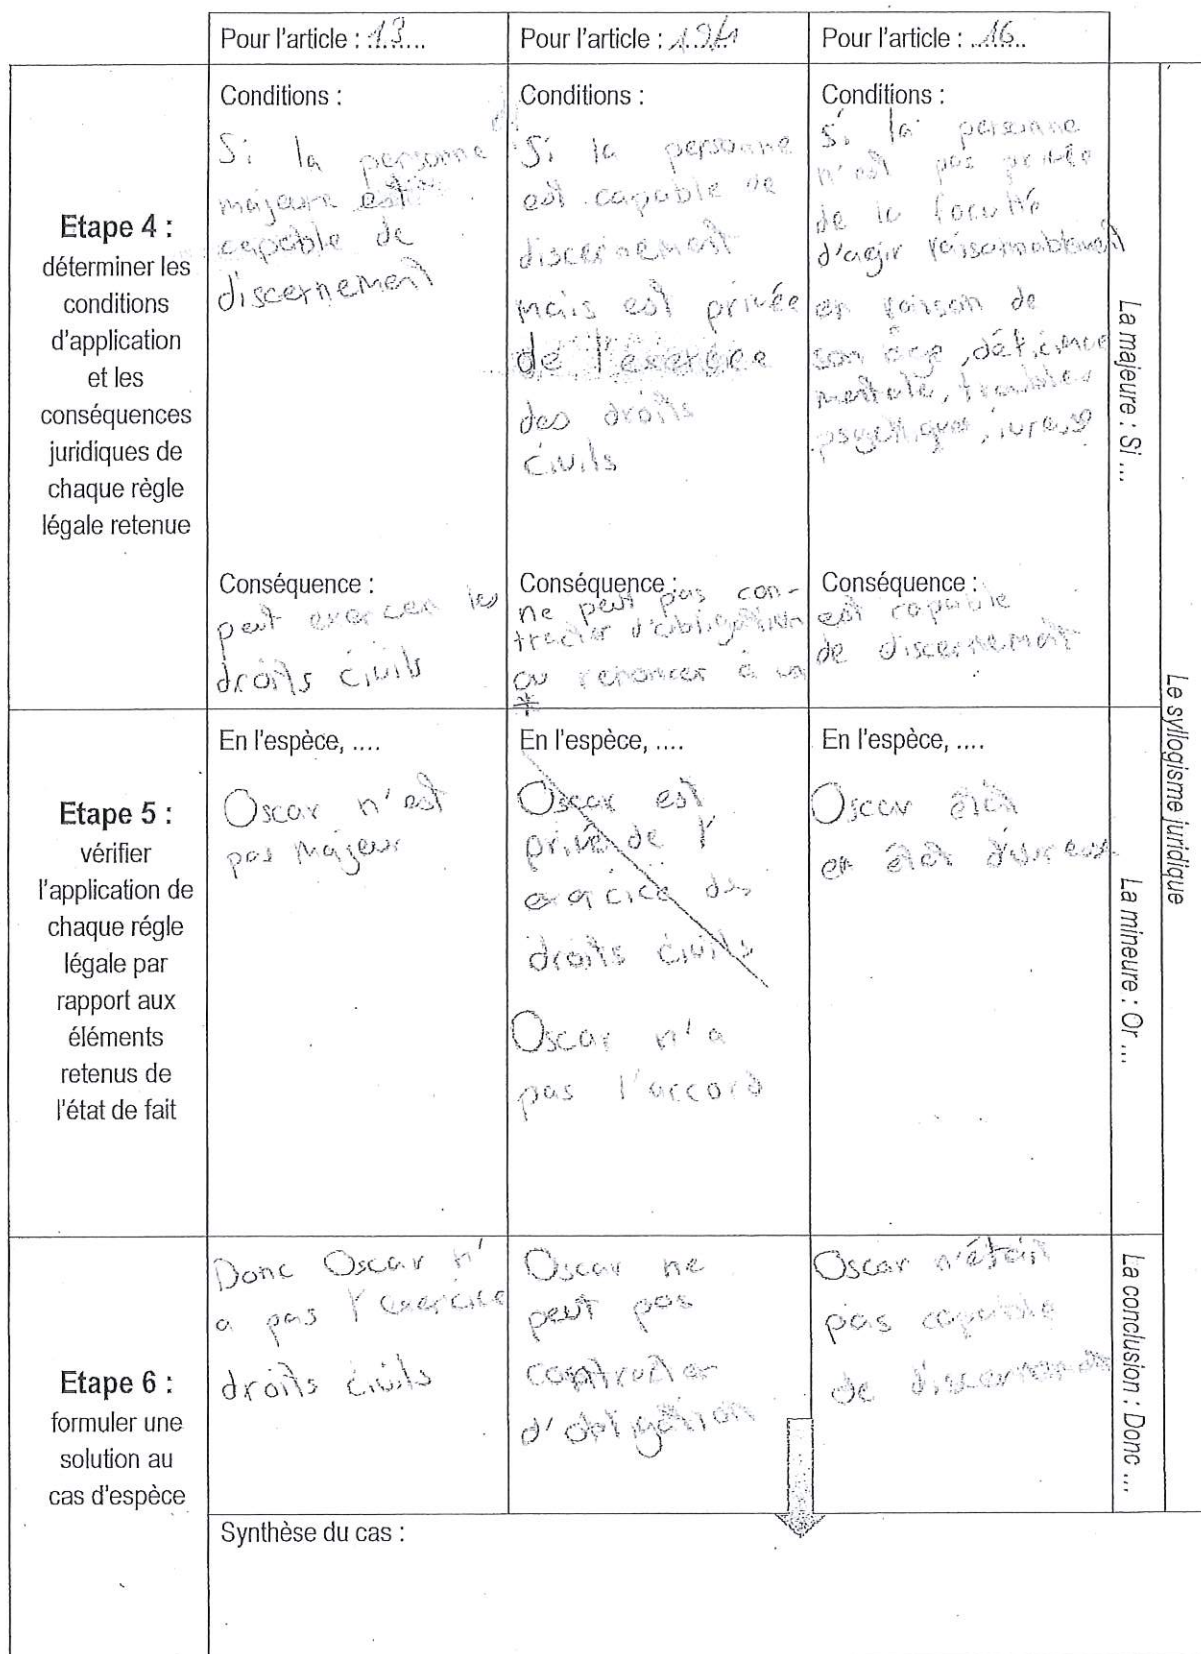 Pour l'article : 13
Pour l'article : 19 al 1
Pour l'article : 16
Etape 4 :
déterminer les
conditions
d'application
et les
conséquences
juridiques de
chaque règle
légale retenue
Conditions :
Si la personne
majeure est
capable de
discernement
Conséquence :
peut exercer les
droits civils
Conditions :
Si la personne
est capable de
discernement
mais est privée
de l'exercice
des droits
civils
Conséquence :
ne peut pas con-
tracter d'obligation
ou renoncer à un
*
Conditions :
Si la personne
n'est pas privée
de la faculté
d'agir raisonnablement
en raison de
son âge, déficience
mentale, troubles
psychiques, ivresse
Conséquence :
est capable
de discernement
La majeure : Si ...
Le syllogisme juridique
Etape 5 :
vérifier
l'application de
chaque régle
légale par
rapport aux
éléments
retenus de
l'état de fait
En l'espèce, ....
Oscar n'est
pas majeur
En l'espèce, ....
Oscar est
privé de l'
exercice des
droits civils
Oscar n'a
pas l'accord
En l'espèce, ....
Oscar était
en état d'ivresse
La mineure : Or ...
Etape 6 :
formuler une
solution au
cas d'espèce
Donc Oscar n'
a pas l'exercice
droits civils
Oscar ne
peut pas
contracter
d'obligation
Oscar n'était
pas capable
de discernement
La conclusion : Donc ...
Synthèse du cas :